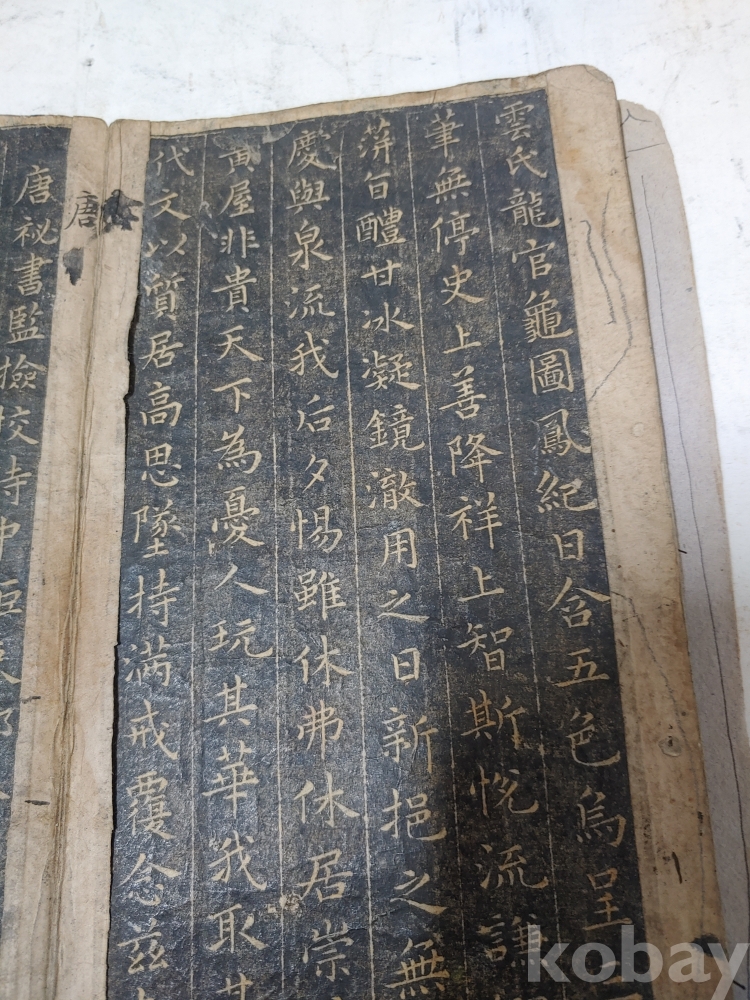 雲氏龍官龜圖鳳紀日含五色烏呈
筆無停史上善降祥上智斯悅流謙
蓱旨醴甘冰凝鏡澈用之日新挹之無
慶與泉流我后夕惕雖休弗休居崇
黃屋非貴天下為憂人玩其華我取其
代文以質居高思墜持滿戒覆念茲
唐
唐祕書監撿挍侍中
kobay